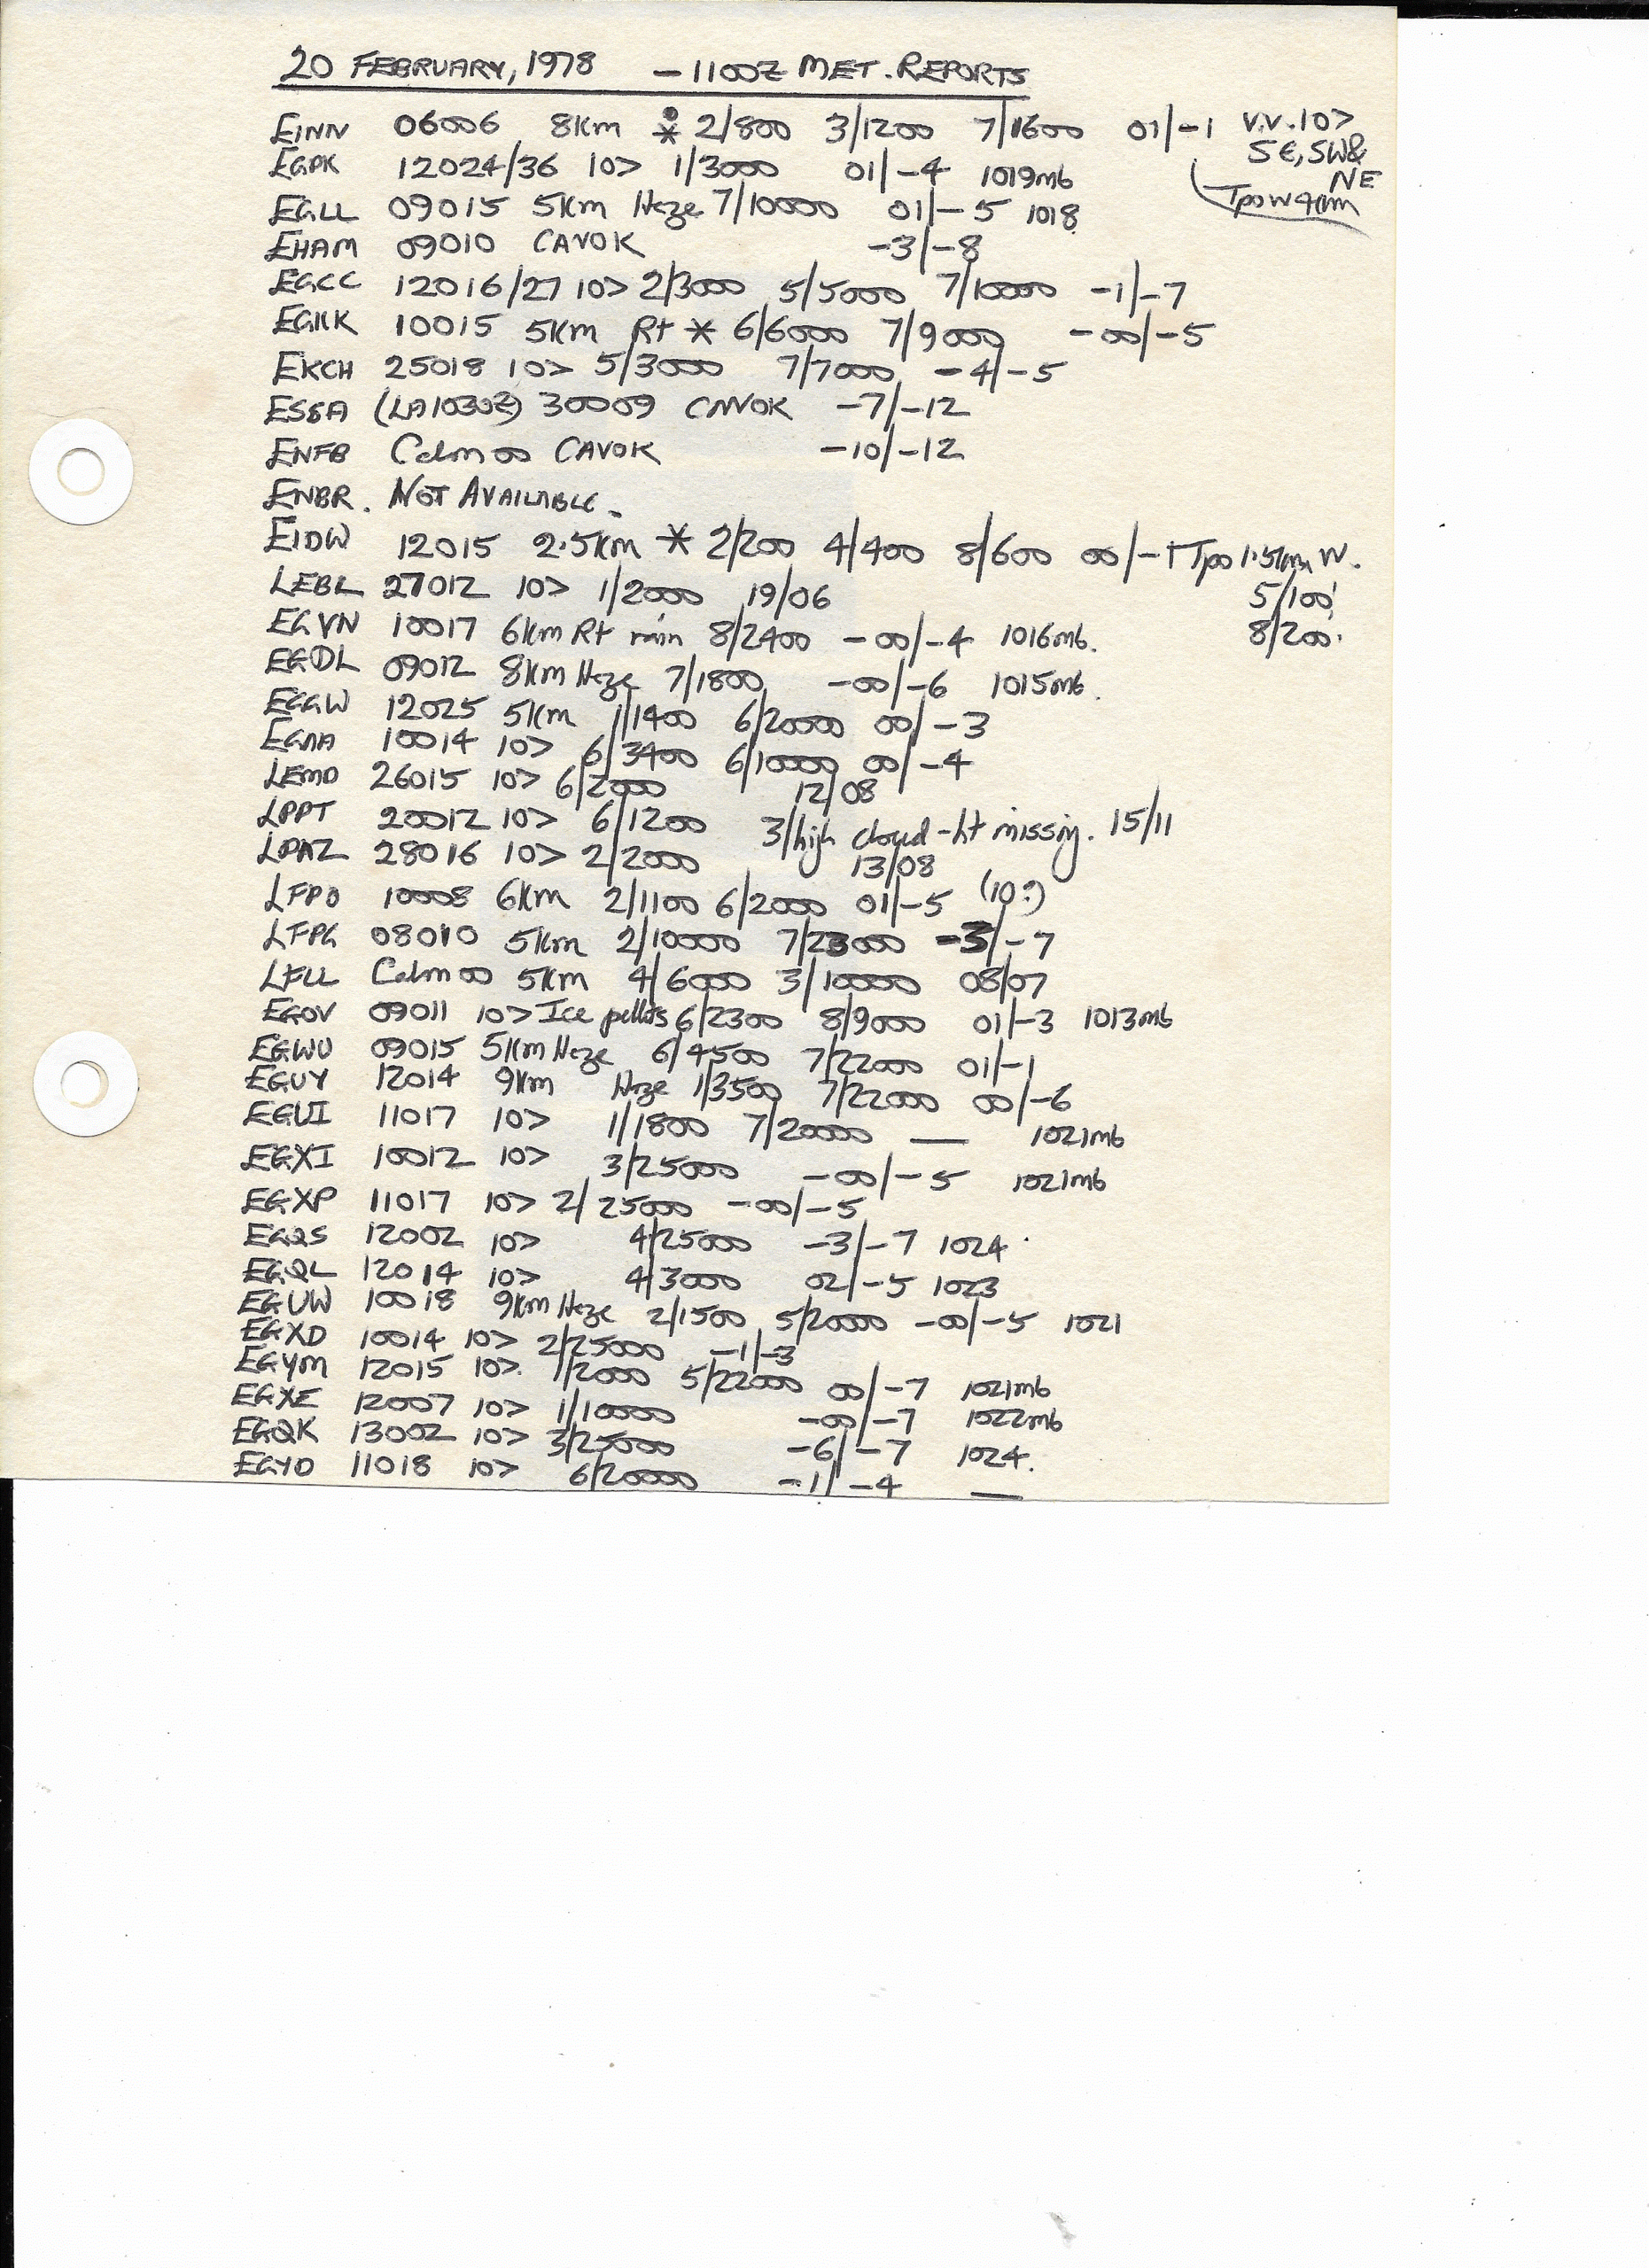 20 FEBRUARY, 1978 - 1100Z MET. REPORTS
EINN 06006 8Km * 2/800 3/1200 7/1600 01/-1 V.V.10>
SE, SW&
NE
EGPK 12024/36 10> 1/3000 01/-4 1019mb
Tpo W 4km
EGLL 09015 5Km Haze 7/10000 01/-5 1018
EHAM 09010 CAVOK -3/-8
EGCC 12016/27 10> 2/3000 5/5000 7/10000 -1/-7
EGKK 10015 5Km Rt * 6/6000 7/9000 -00/-5
EKCH 25018 10> 5/3000 7/7000 -4/-5
ESSA (LA1030Z) 30009 CAVOK -7/-12
ENFB Calm 00 CAVOK -10/-12
ENBR. NOT AVAILABLE.
EIDW 12015 2.5Km * 2/200 4/400 8/600 00/-1 Tpo 1.5km W.
5/100'
8/200'
LEBL 27012 10> 1/2000 19/06
EGVN 10017 6Km Rt rain 8/2400 -00/-4 1016mb.
EGDL 09012 8Km Haze 7/1800 -00/-6 1015mb.
EGGW 12025 5Km 1/1400 6/20000 00/-3
EGNA 10014 10> 6/3400 6/10000 00/-4
LEMD 26015 10> 6/2000 12/08
LPPT 20012 10> 6/1200 3/high cloud - ht missing. 15/11
LPAZ 28016 10> 2/2000 13/08
LFPO 10008 6Km 2/1100 6/2000 01/-5 (10?)
LFPG 08010 5Km 2/10000 7/23000 -3/-7
LFLL Calm 00 5Km 4/6000 3/10000 08/07
EGOV 09011 10> Ice pellets 6/2300 8/9000 01/-3 1013mb
EGWU 09015 5Km Haze 6/4500 7/22000 01/-1
EGUY 12014 9Km Haze 1/3500 7/22000 00/-6
EGUI 11017 10> 1/1800 7/20000 — 1021mb
EGXI 10012 10> 3/25000 -00/-5 1021mb
EGXP 11017 10> 2/25000 -00/-5
EGQS 12002 10> 4/25000 -3/-7 1024
EGQL 12014 10> 4/3000 02/-5 1023
EGUW 10018 9Km Haze 2/1500 5/20000 -00/-5 1021
EGXD 10014 10> 2/25000 -1/-3
EGYM 12015 10> 1/2000 5/22000 00/-7 1021mb
EGXE 12007 10> 1/10000 -00/-7 1022mb
EGQK 13002 10> 3/25000 -6/-7 1024.
EGYD 11018 10> 6/20000 -1/-4 —